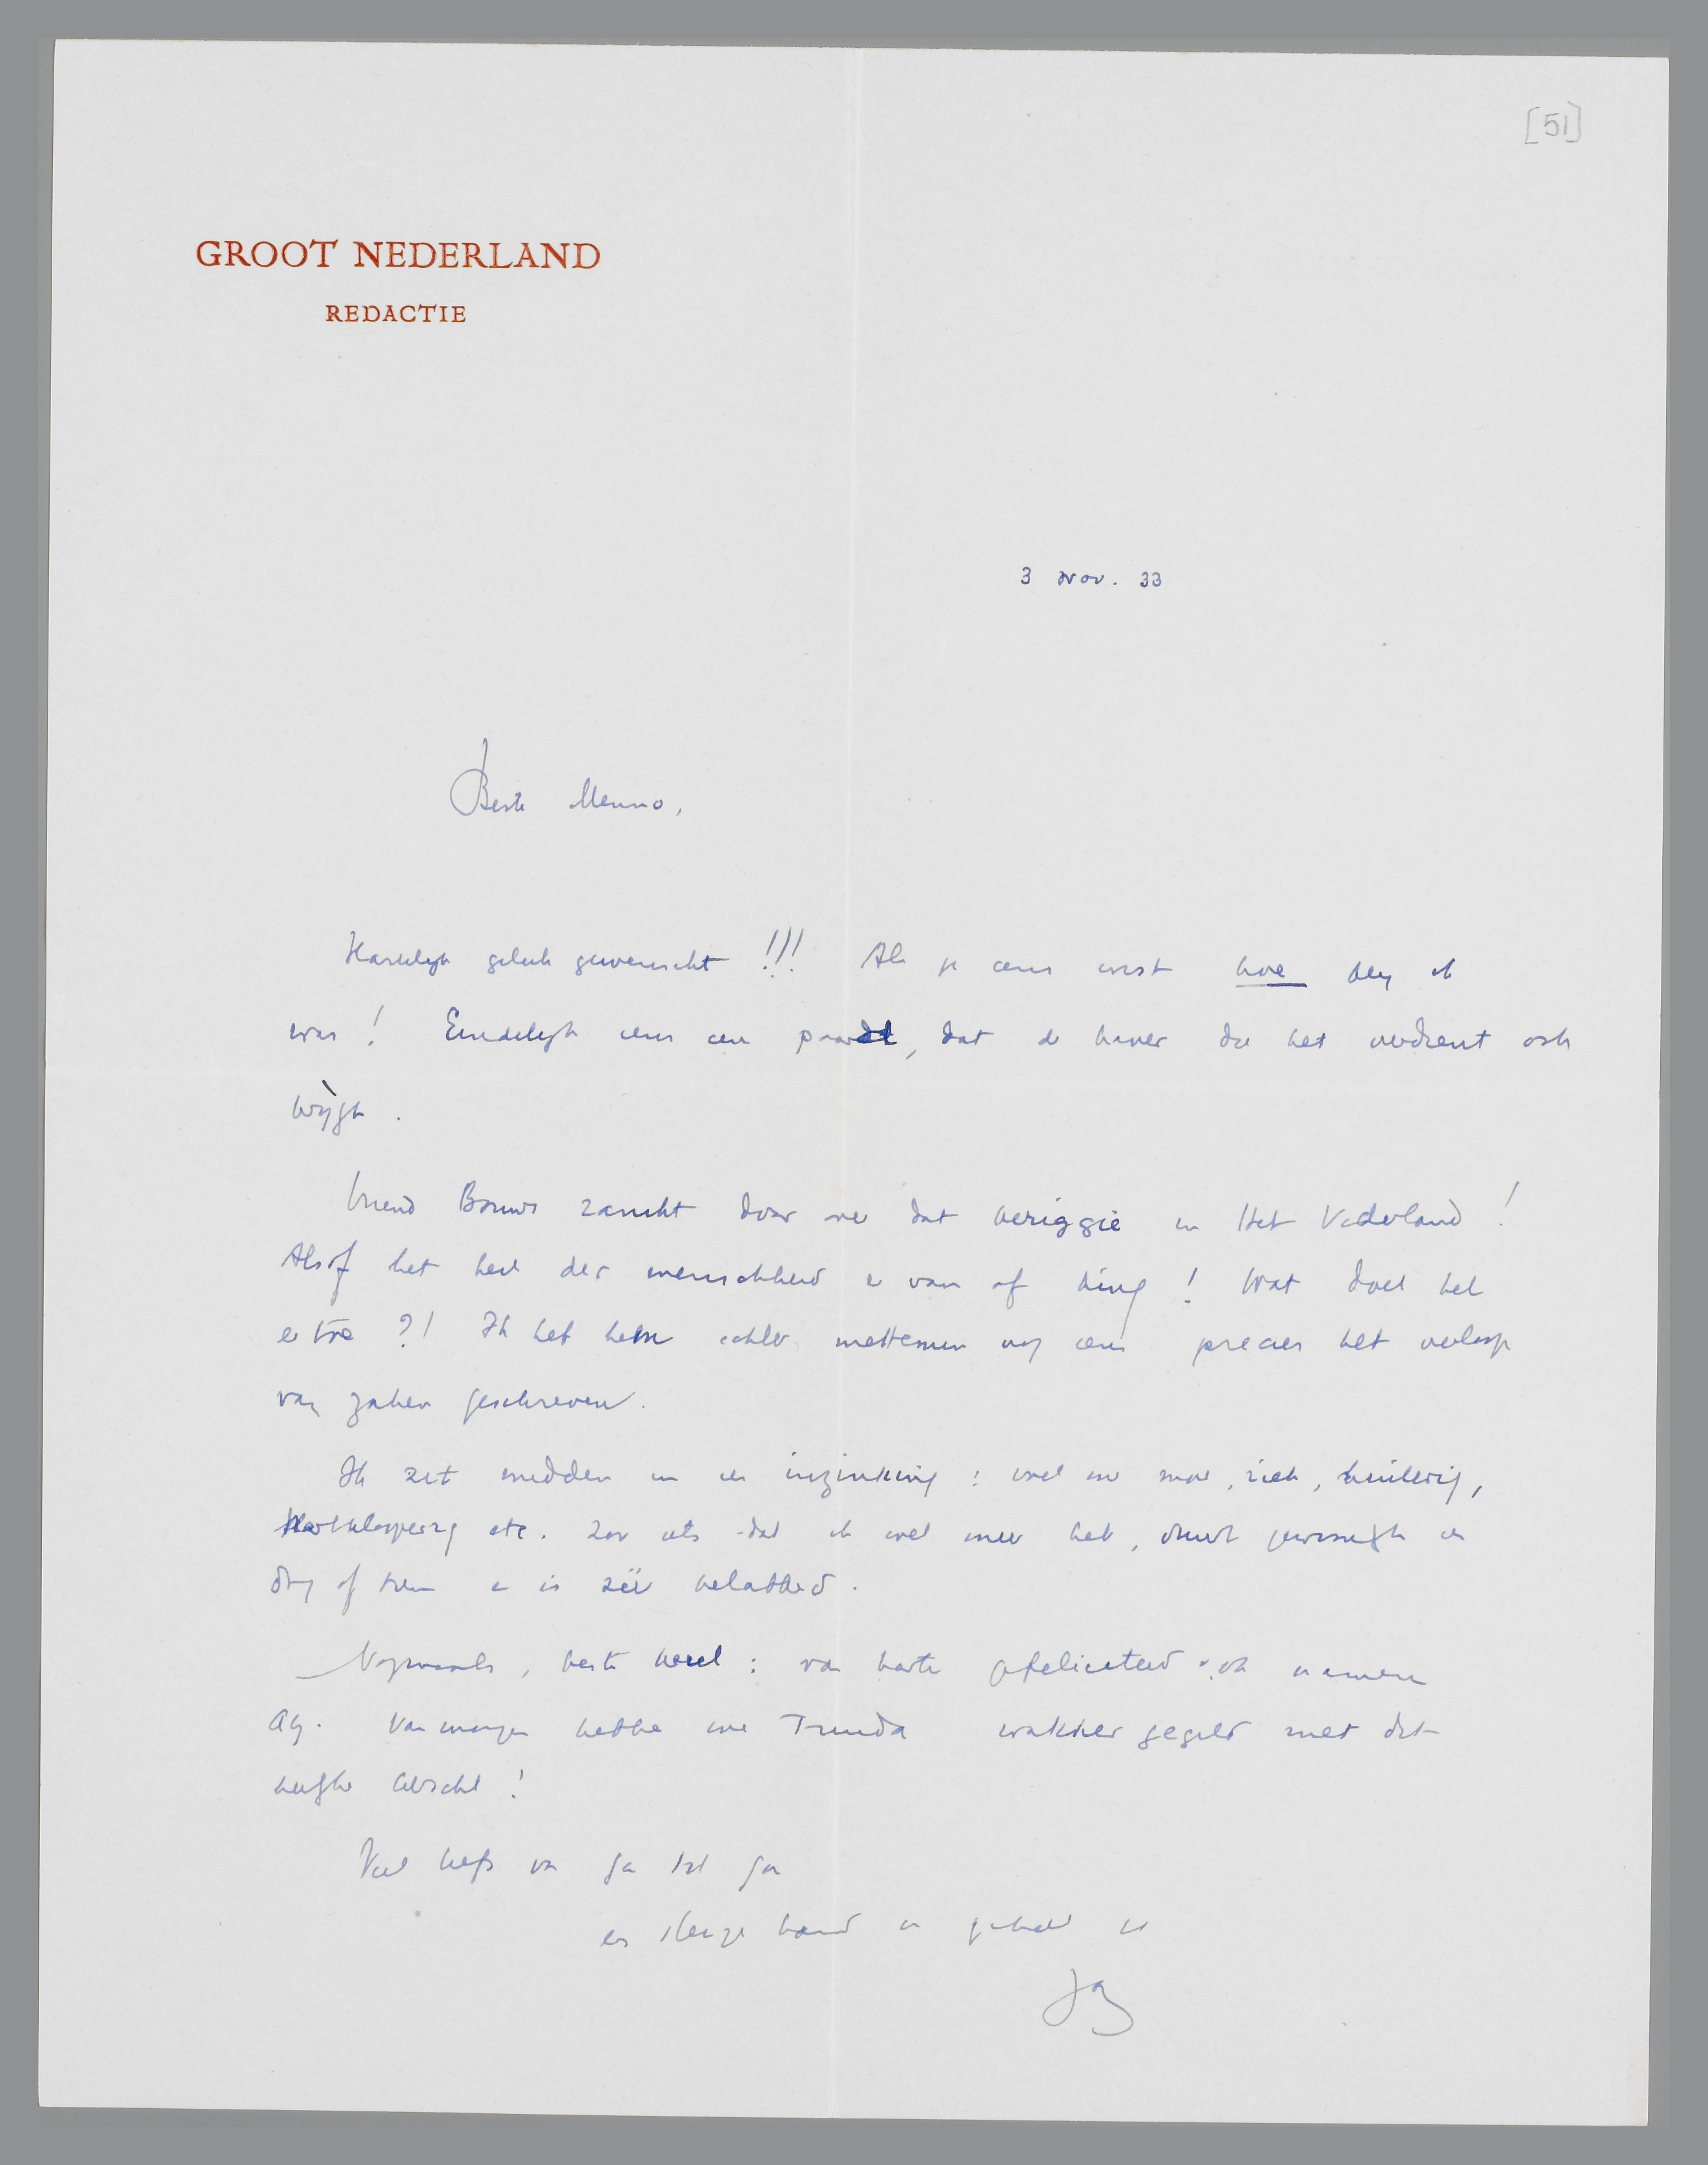 [51]
GROOT NEDERLAND
REDACTIE
3 Nov. 33
Beste Menno,
Hartelijk geluk gewenscht!!! Als je eens wist hoe blij ik
was! Eindelijk eens een paard, dat de haver die het verdient ook
krijgt.
Vriend Bouws zanikt door over dat berigje in Het Vaderland!
Alsof het heil der menschheid er van af hing! Wat doet het
er toe?! Ik heb hem echter meteen nog eens precies het verloop
van zaken geschreven.
Ik zit midden in een inzinking: wel moe, ziek, huilerig,
hartklopperig etc. Zoo iets dat ik wel meer heb, duurt gewoonlijk een
dag of tien en is zéér belabberd.
Nogmaals, beste kerel: van harte gefeliciteerd, ook namens
Atj. Van morgen hebben we Truida wakker gegild met dat
heuglijke bericht!
Veel liefs van ga tot ga
en stevige hand in gehecht je
Jg